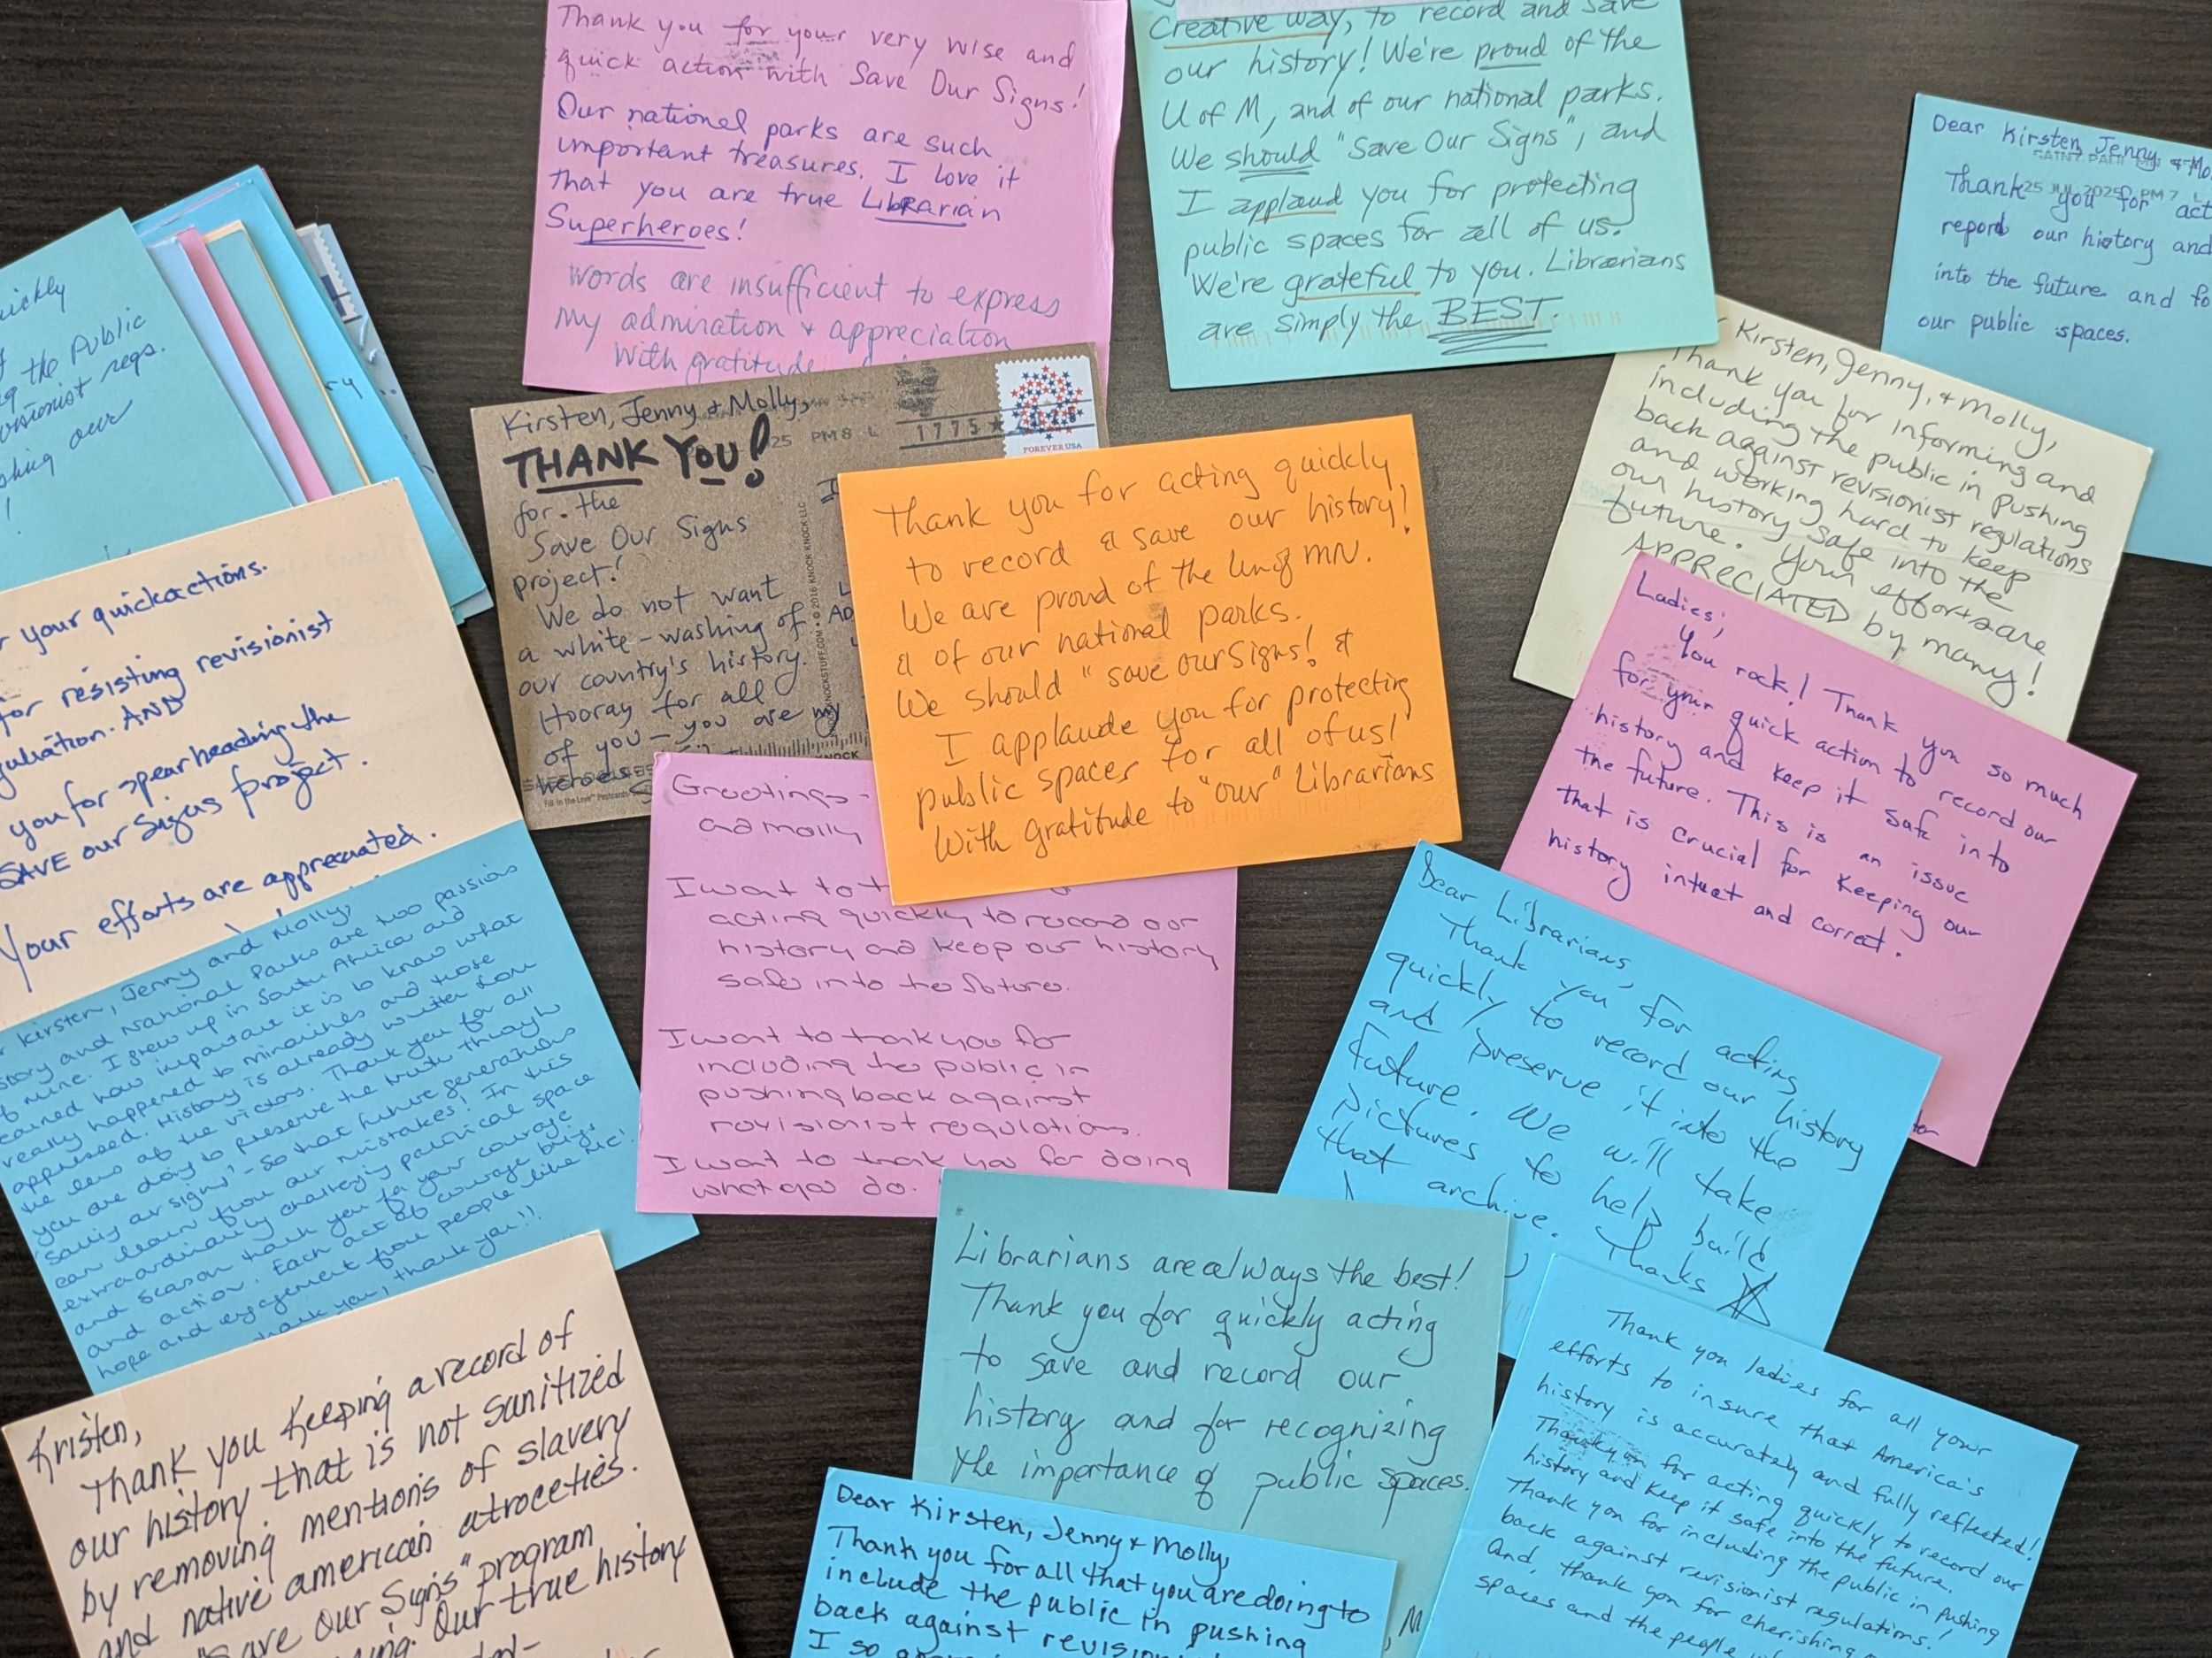 Thank you for your very wise and
quick action with Save Our Signs!
Our national parks are such
important treasures. I love it
that you are true Librarian
Superheroes!
words are insufficient to express
my admiration & appreciation
With gratitude
Creative way, to record and save
our history! We're proud of the
U of M, and of our national parks.
We should "Save Our Signs", and
I applaud you for protecting
public spaces for all of us.
We're grateful to you. Librarians
are simply the BEST.
Dear Kirsten, Jenny & Mo
SAINT PAUL MN
25 JUL 2025 PM 7 L
Thank you for act
report our history and
into the future and fo
our public spaces.
uickly
the Public
regs.
our
ry
Kirsten, Jenny & Molly,
25 PM 8 L
1775 ★
FOREVER USA
THANK YOU!
for the
Save Our Signs
project!
We do not want
a white-washing of
our country's history.
Hooray for all
of you — you are my
heroes
KNOCKSTUFF.COM • © 2016 KNOCK KNOCK LLC
Fill in the Love™ Postcards
Thank you for acting quickly
to record & save our history!
We are proud of the Un of MN.
& of our national parks.
We should "save our Signs! &
I applaude you for protecting
public spaces for all of us!
With gratitude to "our" Librarians
Kirsten, Jenny, & Molly,
Thank you for informing and
including the public in pushing
back against revisionist regulations
and working hard to keep
our history safe into the
future. Your efforts are
APPRECIATED by many!
Ladies,
You rock! Thank you so much
for your quick action to record our
history and keep it safe into
the future. This is an issue
that is crucial for keeping our
history intact and correct.
r your quick actions.
for resisting revisionist
gulation. AND
you for spearheading the
SAVE our Signs project.
Your efforts are appreciated.
Greetings -
ad molly
I want to t
acting quickly to record our
history ad keep our history
safe into the future.
I want to thank you for
including the public in
pushing back against
revisionist regulations.
I want to thank you for doing
what you do.
Dear Librarians,
Thank you for acting
quickly to record our history
and preserve it into the
future. We will take
pictures to help build
that archive. Thanks
Kirsten, Jenny and Molly,
story and National Parks are two passions
of mine. I grew up in South Africa and
learned how important it is to know what
really happened to minorities and those
oppressed. History is already written from
the lens of the victors. Thank you for all
you are doing to preserve the truth through
'saving our signs' - so that future generations
can learn from our mistakes! In this
extraordinarily challenging political space
and season thank you for your courage
and action. Each act of courage brings
hope and engagement from people like me!
thank you, thank you!!
Kristen,
Thank you keeping a record of
our history that is not sanitized
by removing mentions of slavery
and native american atroceties.
"Save Our Signs" program
Our true history
Librarians are always the best!
Thank you for quickly acting
to save and record our
history and for recognizing
the importance of public spaces.
Dear Kirsten, Jenny & Molly,
Thank you for all that you are doing to
include the public in pushing
back against revision
I so
Thank you ladies for all your
efforts to insure that America's
history is accurately and fully reflected!
Thank you for acting quickly to record our
history and keep it safe into the future.
Thank you for including the public in pushing
back against revisionist regulations!
And, thank you for cherishing
spaces and the people